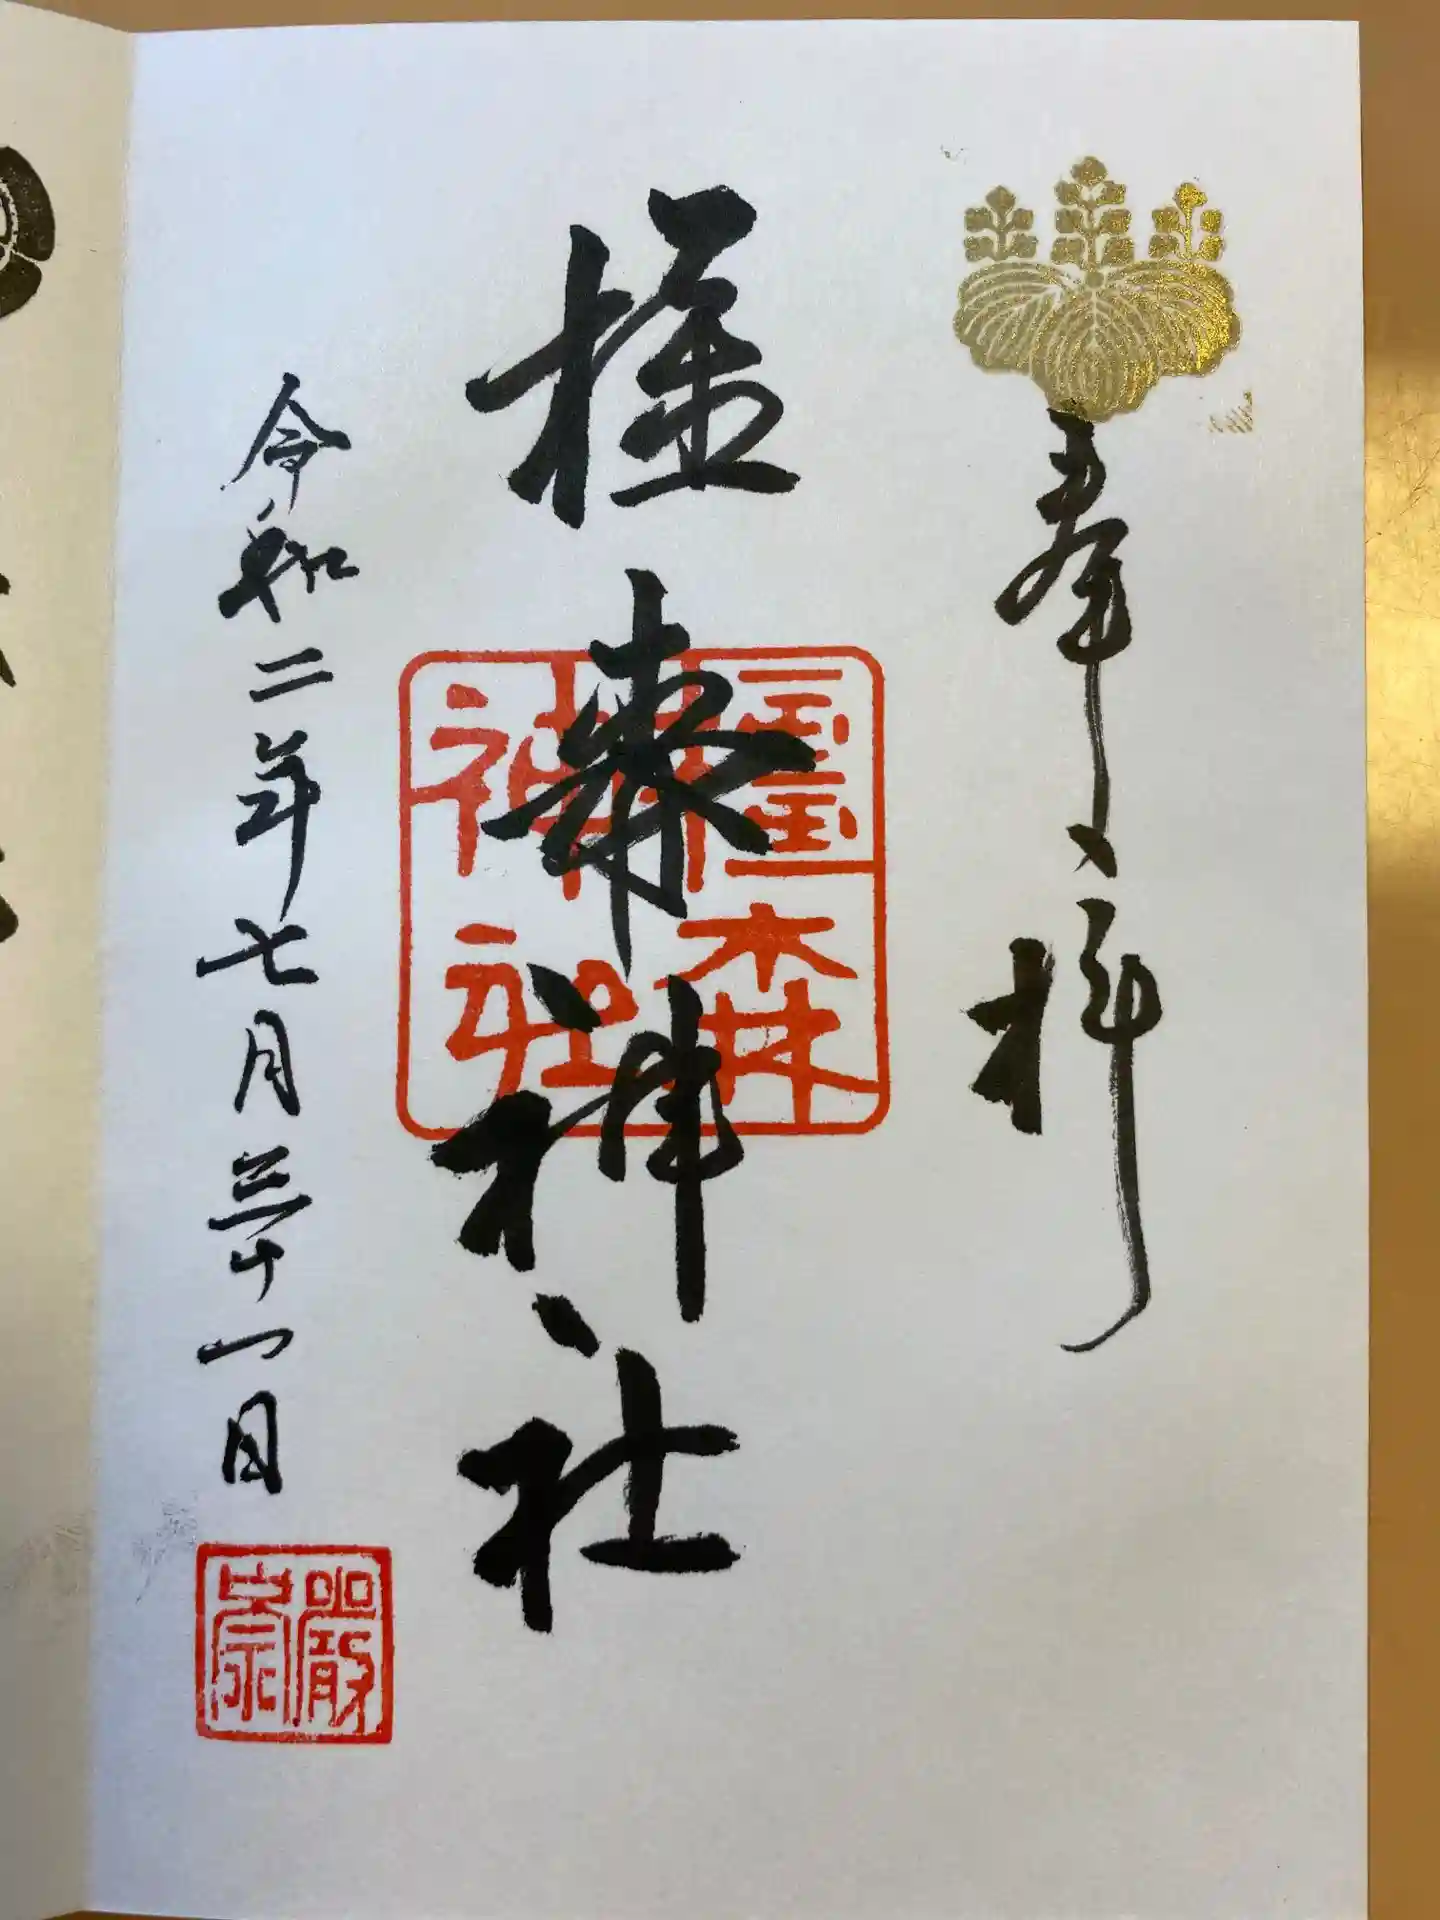 奉拝
橿森神社
橿森
神社
令和二年七月三十一日
嚴
崇